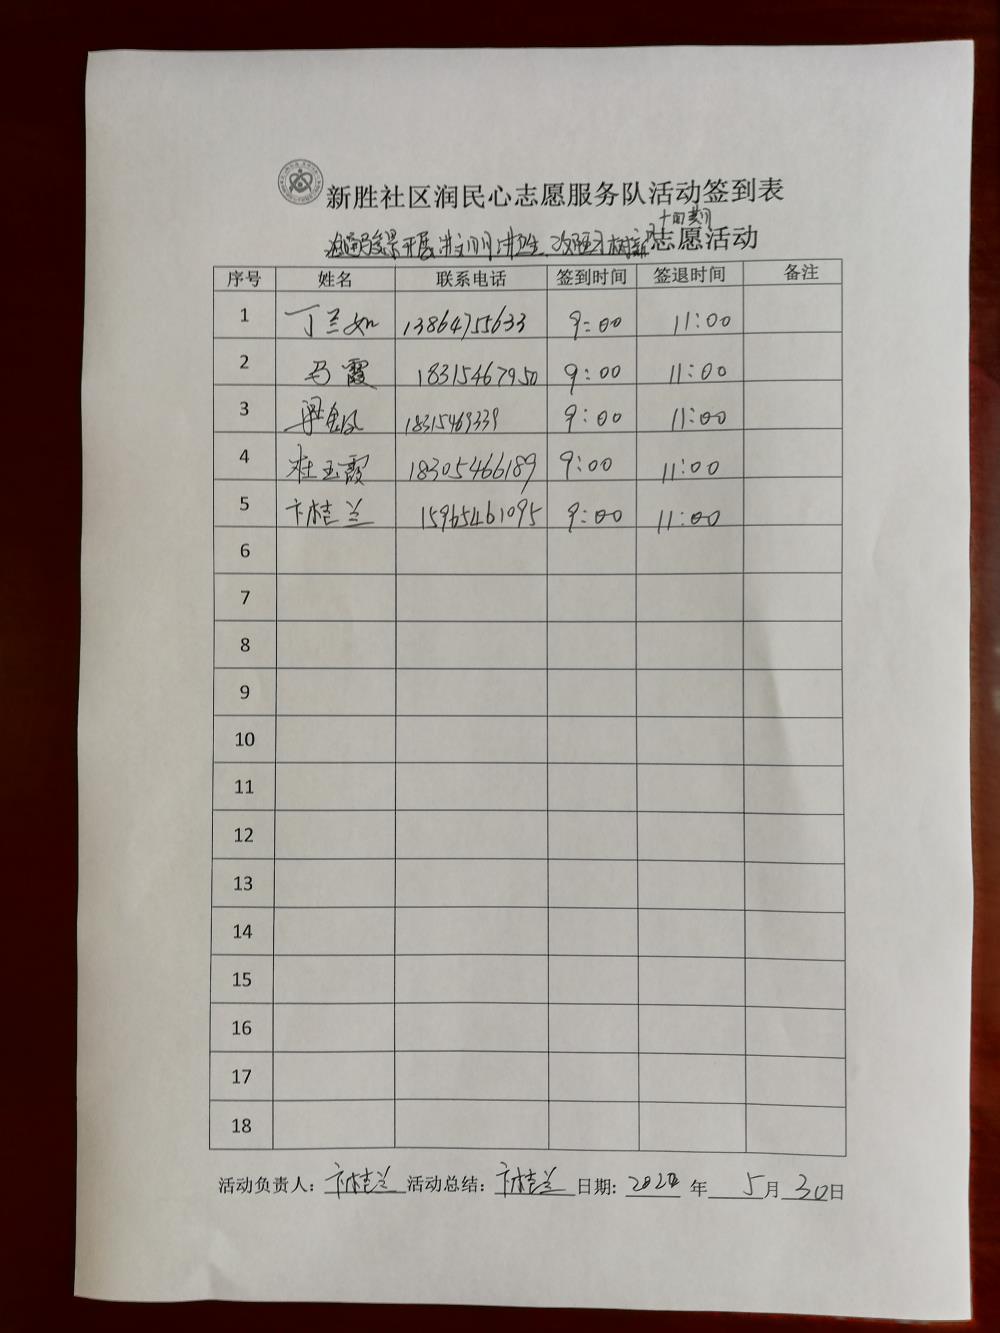 新胜社区润民心志愿服务队活动签到表
十四期
开展讲文明讲卫生、改陋习树新风志愿活动
序号 姓名 联系电话 签到时间 签退时间 备注
1 丁兰如 13864755633 9:00 11:00
2 马霞 18315467950 9:00 11:00
3 18315469339 9:00 11:00
4 杜玉霞 18305466189 9:00 11:00
5 卞桂兰 15965461095 9:00 11:00
6
7
8
9
10
11
12
13
14
15
16
17
18
活动负责人：卞桂兰 活动总结：卞桂兰 日期：2024 年 5月30日